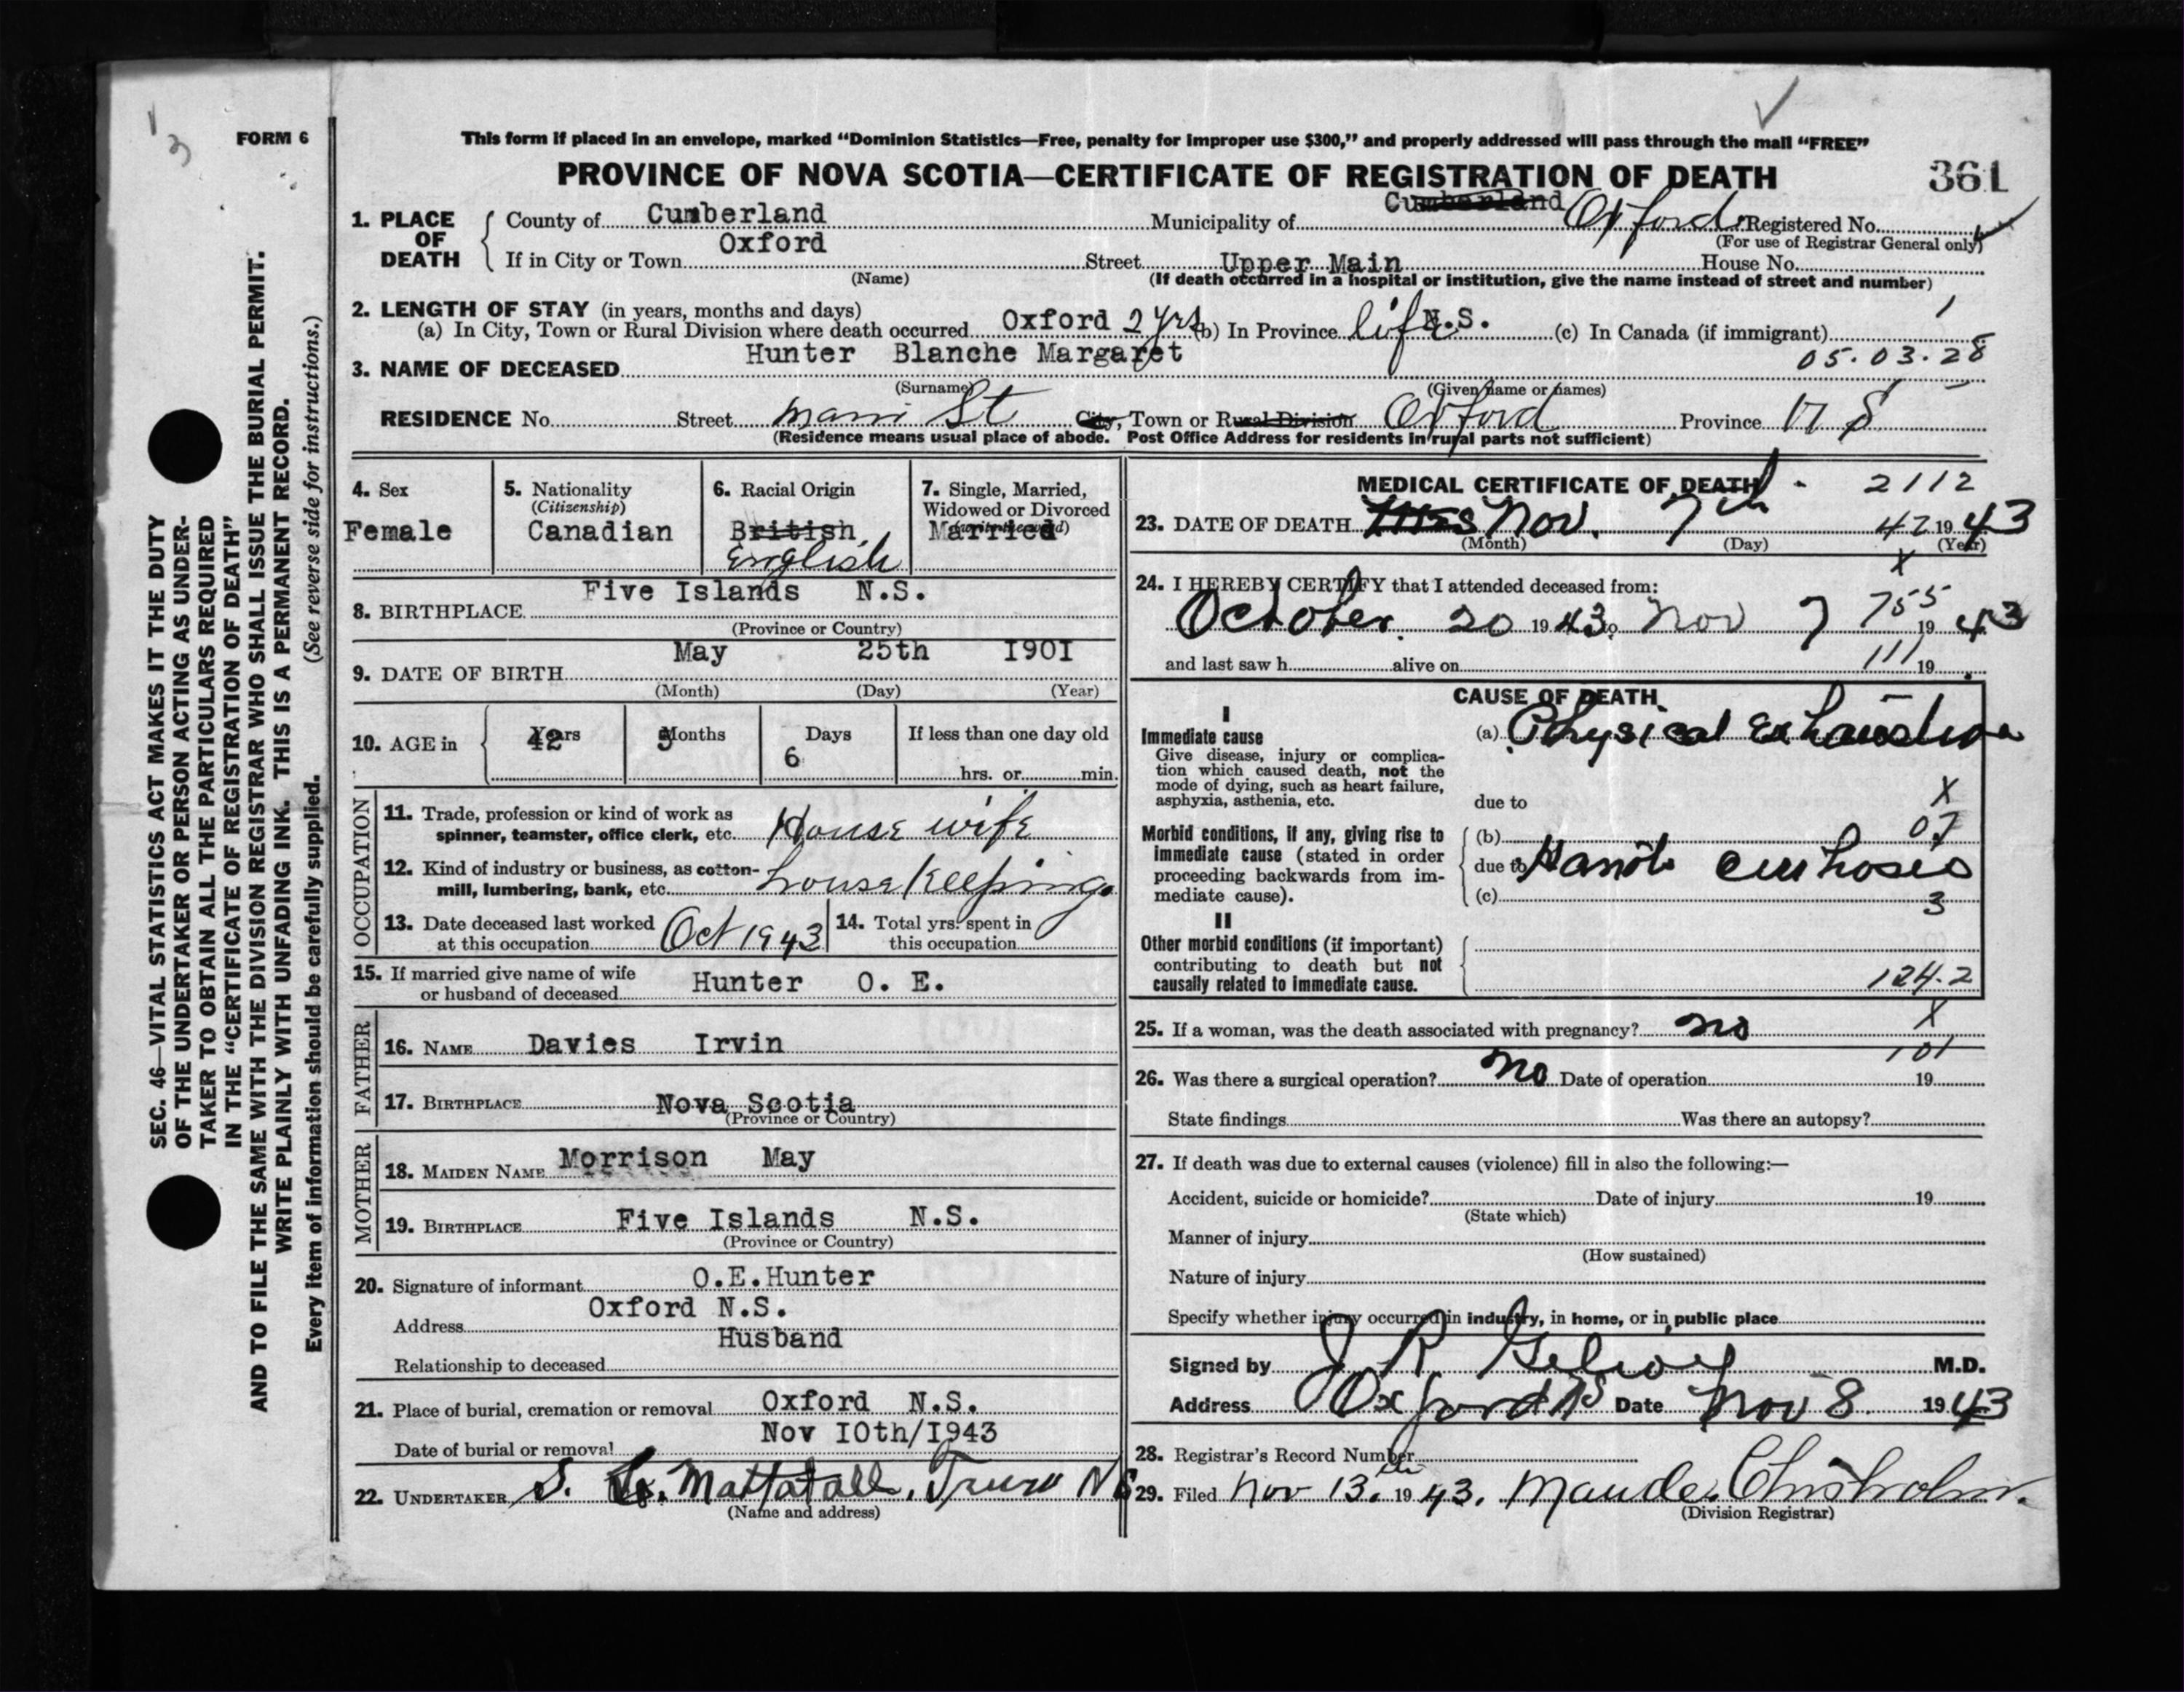 3
FORM 6
This form if placed in an envelope, marked “Dominion Statistics—Free, penalty for improper use $300,” and properly addressed will pass through the mail “FREE”
PROVINCE OF NOVA SCOTIA—CERTIFICATE OF REGISTRATION OF DEATH
361
SEC. 46—VITAL STATISTICS ACT MAKES IT THE DUTY
OF THE UNDERTAKER OR PERSON ACTING AS UNDER-
TAKER TO OBTAIN ALL THE PARTICULARS REQUIRED
IN THE “CERTIFICATE OF REGISTRATION OF DEATH”
AND TO FILE THE SAME WITH THE DIVISION REGISTRAR WHO SHALL ISSUE THE BURIAL PERMIT.
WRITE PLAINLY WITH UNFADING INK. THIS IS A PERMANENT RECORD.
Every item of information should be carefully supplied. (See reverse side for instructions.)
1. PLACE OF DEATH
County of Cumberland Municipality of Cumberland Oxford Registered No.
(For use of Registrar General only)
If in City or Town Oxford Street Upper Main House No.
(Name) (If death occurred in a hospital or institution, give the name instead of street and number)
2. LENGTH OF STAY (in years, months and days)
(a) In City, Town or Rural Division where death occurred Oxford 2 yrs (b) In Province life N.S. (c) In Canada (if immigrant)
05.03.28
3. NAME OF DECEASED Hunter Blanche Margaret
(Surname) (Given name or names)
RESIDENCE No. Street Main St City, Town or Rural Division Oxford Province N S
(Residence means usual place of abode. Post Office Address for residents in rural parts not sufficient)
4. Sex
Female
5. Nationality
(Citizenship)
Canadian
6. Racial Origin
British
English
7. Single, Married,
Widowed or Divorced
(write the word)
Married
8. BIRTHPLACE Five Islands N.S.
(Province or Country)
9. DATE OF BIRTH May 25th I90I
(Month) (Day) (Year)
10. AGE in
Years 42
Months 5
Days 6
If less than one day old
hrs. or min.
OCCUPATION
11. Trade, profession or kind of work as
spinner, teamster, office clerk, etc. House wife
12. Kind of industry or business, as cotton-
mill, lumbering, bank, etc. house keeping
13. Date deceased last worked
at this occupation Oct 1943
14. Total yrs. spent in
this occupation
15. If married give name of wife
or husband of deceased Hunter O. E.
FATHER
16. NAME Davies Irvin
17. BIRTHPLACE Nova Scotia
(Province or Country)
MOTHER
18. MAIDEN NAME Morrison May
19. BIRTHPLACE Five Islands N.S.
(Province or Country)
20. Signature of informant O.E.Hunter
Address Oxford N.S.
Relationship to deceased Husband
21. Place of burial, cremation or removal Oxford N.S.
Date of burial or removal Nov IOth/I943
22. UNDERTAKER S. Mattatall, Truro N S
(Name and address)
MEDICAL CERTIFICATE OF DEATH
2112
23. DATE OF DEATH Nov. 7th 19 43
(Month) (Day) (Year)
24. I HEREBY CERTIFY that I attended deceased from:
October 20 19 43 to Nov 7 19 43
755
and last saw h alive on 19
111
CAUSE OF DEATH
I
Immediate cause
Give disease, injury or complica-
tion which caused death, not the
mode of dying, such as heart failure,
asphyxia, asthenia, etc.
(a) Physical Exhaustion
due to
X
07
Morbid conditions, if any, giving rise to
immediate cause (stated in order
proceeding backwards from im-
mediate cause).
(b)
due to cirrhosis
(c)
3
II
Other morbid conditions (if important)
contributing to death but not
causally related to immediate cause.
124.2
25. If a woman, was the death associated with pregnancy? no
X
101
26. Was there a surgical operation? no Date of operation 19
State findings Was there an autopsy?
27. If death was due to external causes (violence) fill in also the following:—
Accident, suicide or homicide? Date of injury 19
(State which)
Manner of injury
(How sustained)
Nature of injury
Specify whether injury occurred in industry, in home, or in public place
Signed by J R M.D.
Address Oxford NS Date Nov 8 19 43
28. Registrar's Record Number
29. Filed Nov 13th 19 43. Maude Chisholm
(Division Registrar)